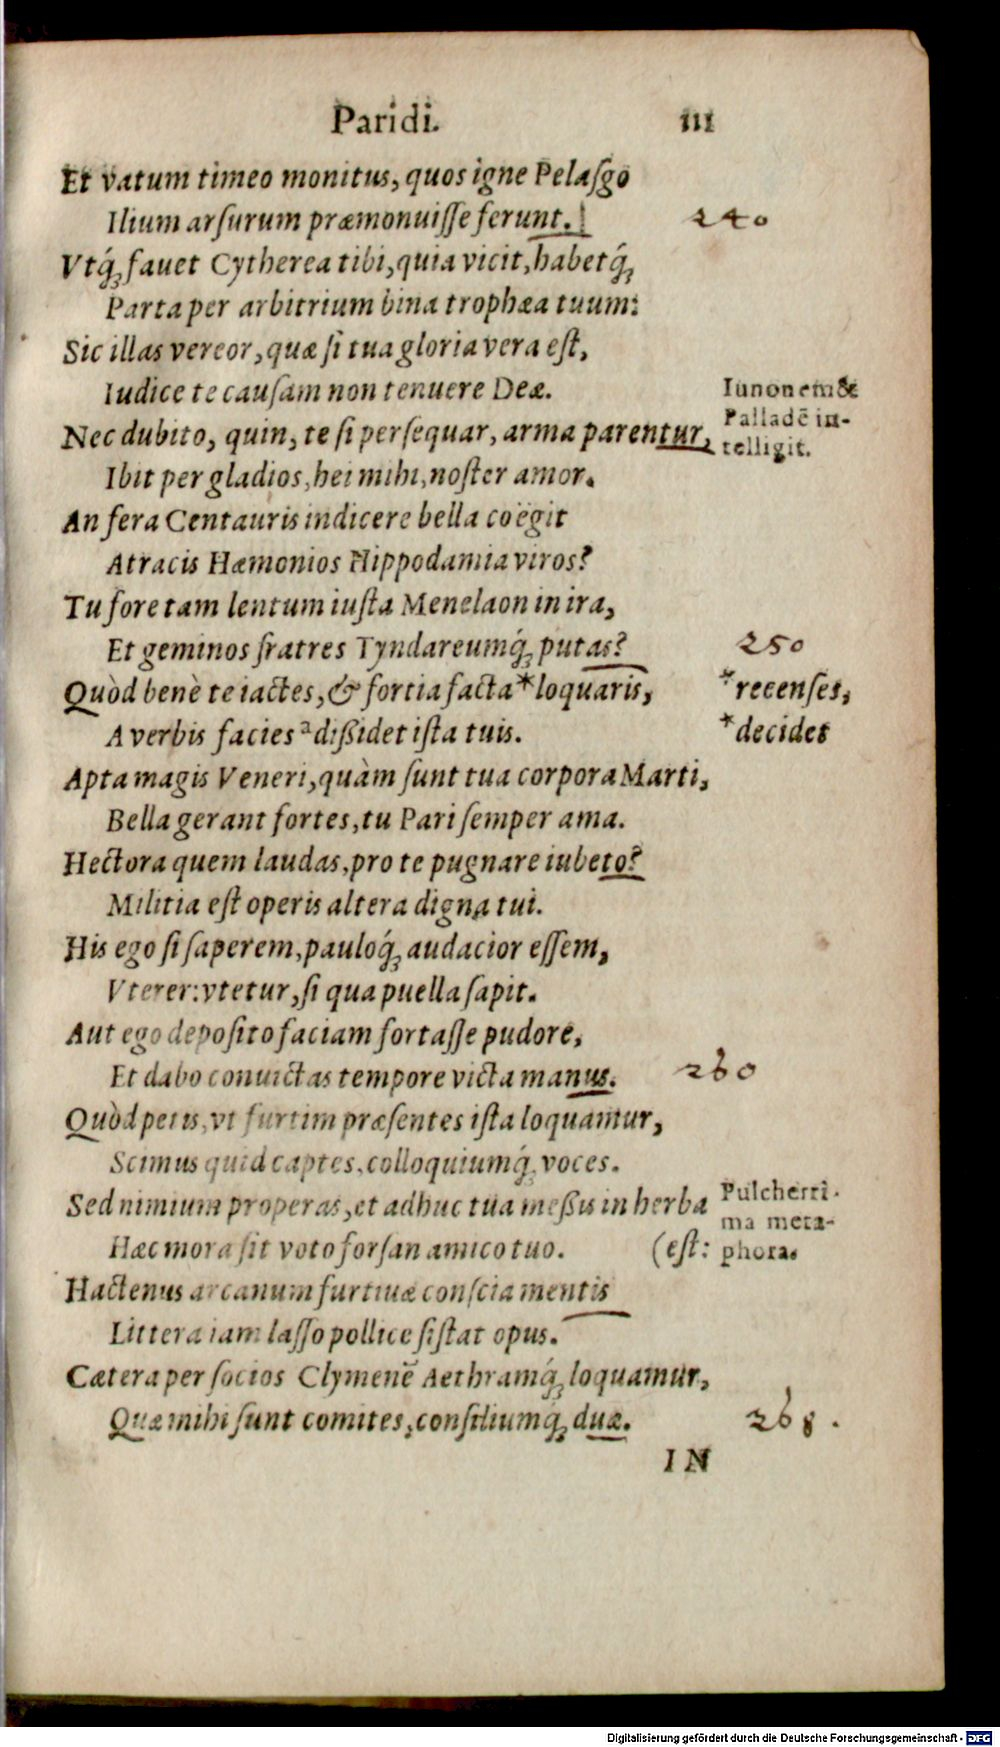 Paridi. 111
Et vatum timeo monitus, quos igne Pelaſgo
Ilium arſurum præmonuiſſe ferunt. 240
Vtq́; fauet Cytherea tibi, quia vicit, habetq́;
Parta per arbitrium bina trophæa tuum:
Sic illas vereor, quæ ſi tua gloria vera eſt,
Iudice te cauſam non tenuere Deæ.
Iunonem &
Palladẽ in-
telligit.
Nec dubito, quin, te ſi perſequar, arma parentur,
Ibit per gladios, hei mihi, noſter amor.
An fera Centauris indicere bella coëgit
Atracis Hæmonios Hippodamia viros?
Tu fore tam lentum iuſta Menelaon in ira,
Et geminos fratres Tyndareumq́; putas? 250
Quòd benè te iactes, & fortia facta * loquaris, * recenſes,
A verbis facies ² dißidet iſta tuis. * decidet
Apta magis Veneri, quàm ſunt tua corpora Marti,
Bella gerant fortes, tu Pari ſemper ama.
Hectora quem laudas, pro te pugnare iubeto?
Militia eſt operis altera digna tui.
His ego ſi ſaperem, pauloq́; audacior eſſem,
Vterer: vtetur, ſi qua puella ſapit.
Aut ego depoſito faciam fortaſſe pudore,
Et dabo conuictas tempore victa manus. 260
Quòd petis, vt furtim præſentes iſta loquamur,
Scimus quid captes, colloquiumq́; voces.
Sed nimium properas, et adhuc tua meßis in herba
(eſt:
Pulcherri-
ma meta-
phora.
Hæc mora ſit voto forſan amico tuo.
Hactenus arcanum furtiuæ conſcia mentis
Littera iam laſſo pollice ſiſtat opus.
Cætera per ſocios Clymenẽ Aethramq́; loquamur,
Quæ mihi ſunt comites, conſiliumq́; duæ. 268.
IN
Digitalisierung gefördert durch die Deutsche Forschungsgemeinschaft - DFG